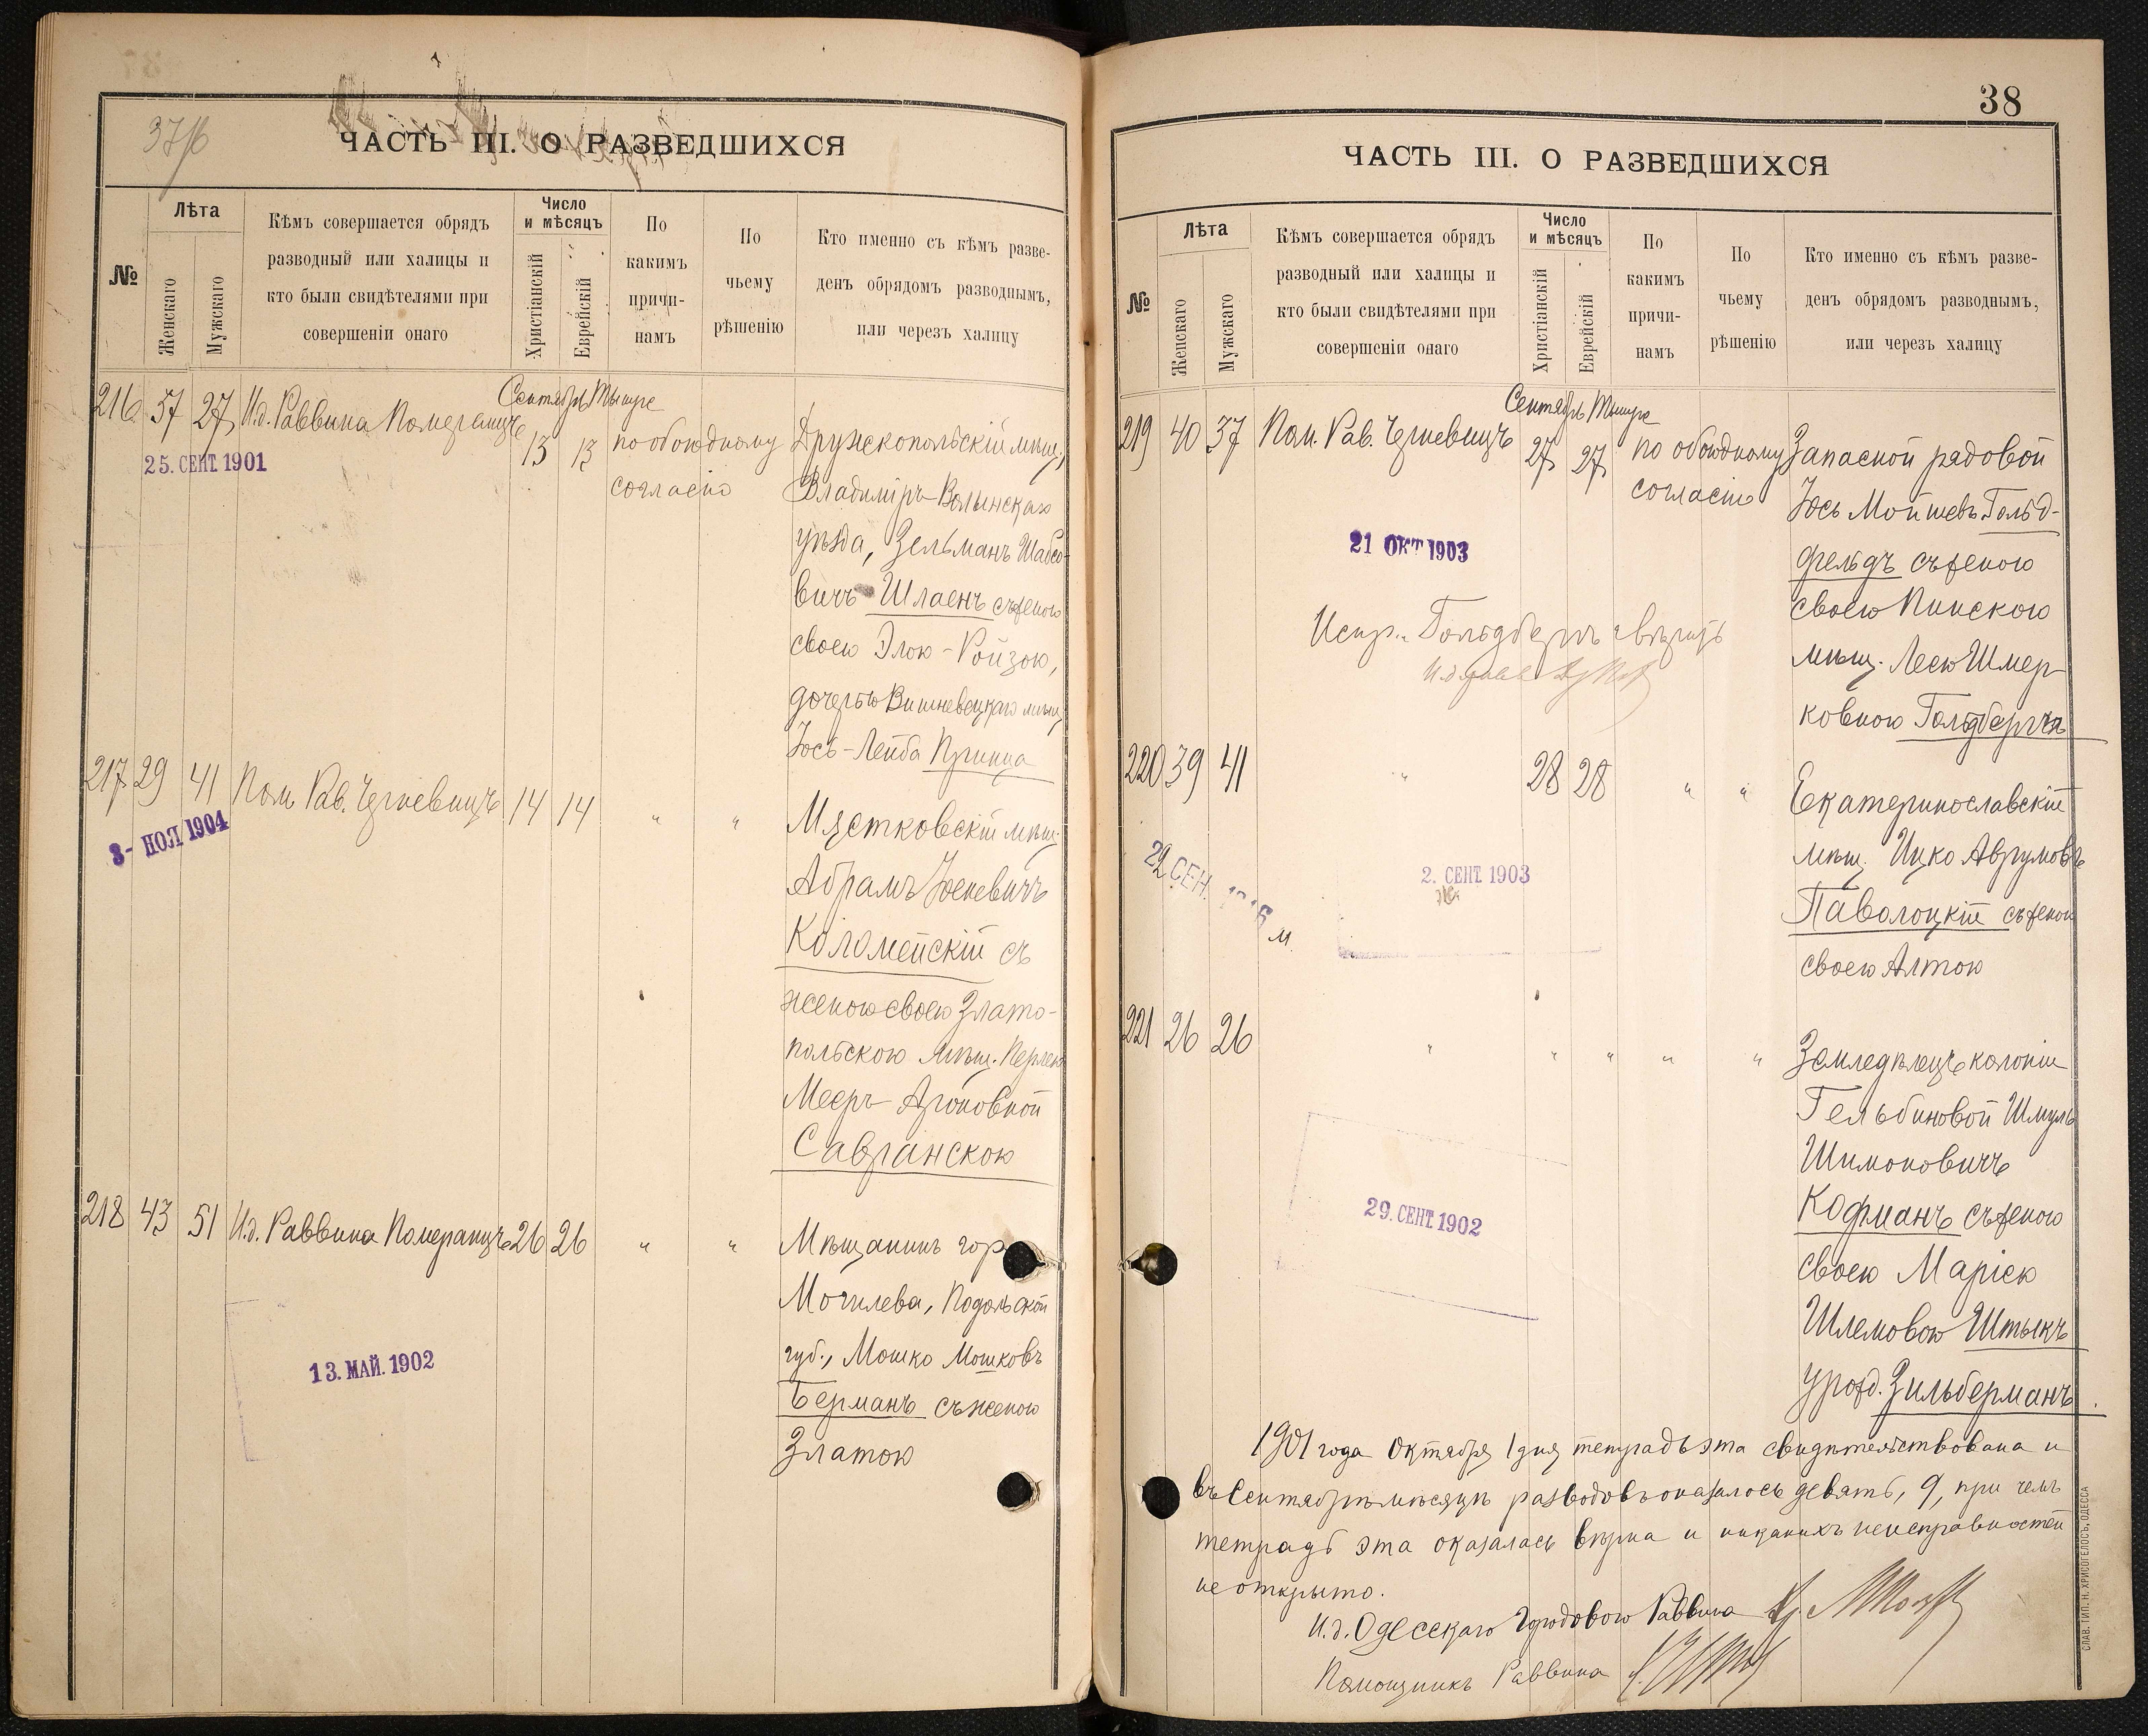 37/б
ЧАСТЬ III. О РАЗВЕДШИХСЯ
№
Лѣта
Женскаго
Мужскаго
Кѣмъ совершается обрядъ
разводный или халицы и
кто были свидѣтелями при
совершеніи онаго
Число
и мѣсяцъ
Христіанскій
Еврейскій
По
какимъ
причи-
намъ
По
чьему
рѣшенію
Кто именно съ кѣмъ разве-
денъ обрядомъ разводнымъ,
или черезъ халицу
Сентябрь Тышре
216 57 27 И.д. Раввина Померанцъ 13 13 по обоюдному Дружскопольскій мѣщ.,
25. СЕНТ. 1901
согласію Владиміръ-Волынскаго
уѣзда, Зельманъ Шабсо-
вичъ Шлаенъ съ женою
своею Элою-Ройзою,
дочерью Вишневецкаго мѣщ.
Іось-Лейба Принца
217 29 41 Пом. Рав. Черневицъ 14 14 " " Мястковскій мѣщ.
3- НОЯ 1904
Абрамъ
Коломейскій съ
женою своею Злато-
польскою мѣщ. Перлею
Мееръ-Ароновной
Савранскою
218 43 51 И.д. Раввина Померанцъ 26 26 " " Мѣщанинъ гор.
Могилева, Подольской
13. МАЙ. 1902
губ., Мошко Мошковъ
Берманъ съ женою
Златою
38
ЧАСТЬ III. О РАЗВЕДШИХСЯ
№
Лѣта
Женскаго
Мужскаго
Кѣмъ совершается обрядъ
разводный или халицы и
кто были свидѣтелями при
совершеніи онаго
Число
и мѣсяцъ
Христіанскій
Еврейскій
По
какимъ
причи-
намъ
По
чьему
рѣшенію
Кто именно съ кѣмъ разве-
денъ обрядомъ разводнымъ,
или черезъ халицу
Сентябрь Тышре
219 40 37 Пом. Рав. Черневицъ 27 27 по обоюдному Запасной рядовой
согласію Іось Мойшевъ Гольд-
21 ОКТ 1903
фельдъ съ женою
своею Пинскою
мѣщ. Леею Шмер-
ковною Гольдбергъ
220 39 41 " 28 28 " " Екатеринославскій
мѣщ. Ицко Аврумовъ
29 СЕН.
2. СЕНТ. 1903
Паволоцкій съ женою
своею Алтою
221 26 26 " " " " " Земледѣлецъ колоніи
Гельбиновой Шмуль
Шимоновичъ
29. СЕНТ. 1902
Кофманъ съ женою
своею Маріею
Шлемовою Штыкъ
урожд. Зильберманъ.
1901 года Октября 1 дня тетрадь эта свидѣтельствована и
въ Сентябрѣ мѣсяцѣ разводовъ оказалось девять, 9, при чемъ
тетрадь эта оказалась вѣрна и никакихъ неисправностей
не открыто.
И.д. Одесскаго Городового Раввина
Помощникъ Раввина
СЛАВ. ТИП. Н. ХРИСОГЕЛОСЪ, ОДЕССА